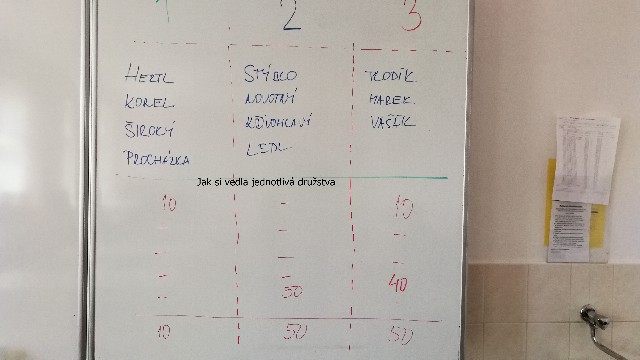 1 2 3
HERTL STÝBLO VLODÍK
KOREL NOVOTNÝ MAREK.
ŠIROKÝ KŘIVOHLAVÝ VAŠÍK
PROCHÁZKA LEDL
Jak si vedla jednotlivá družstva
10 - 10
- - -
- - 40
- 50
10 50 50